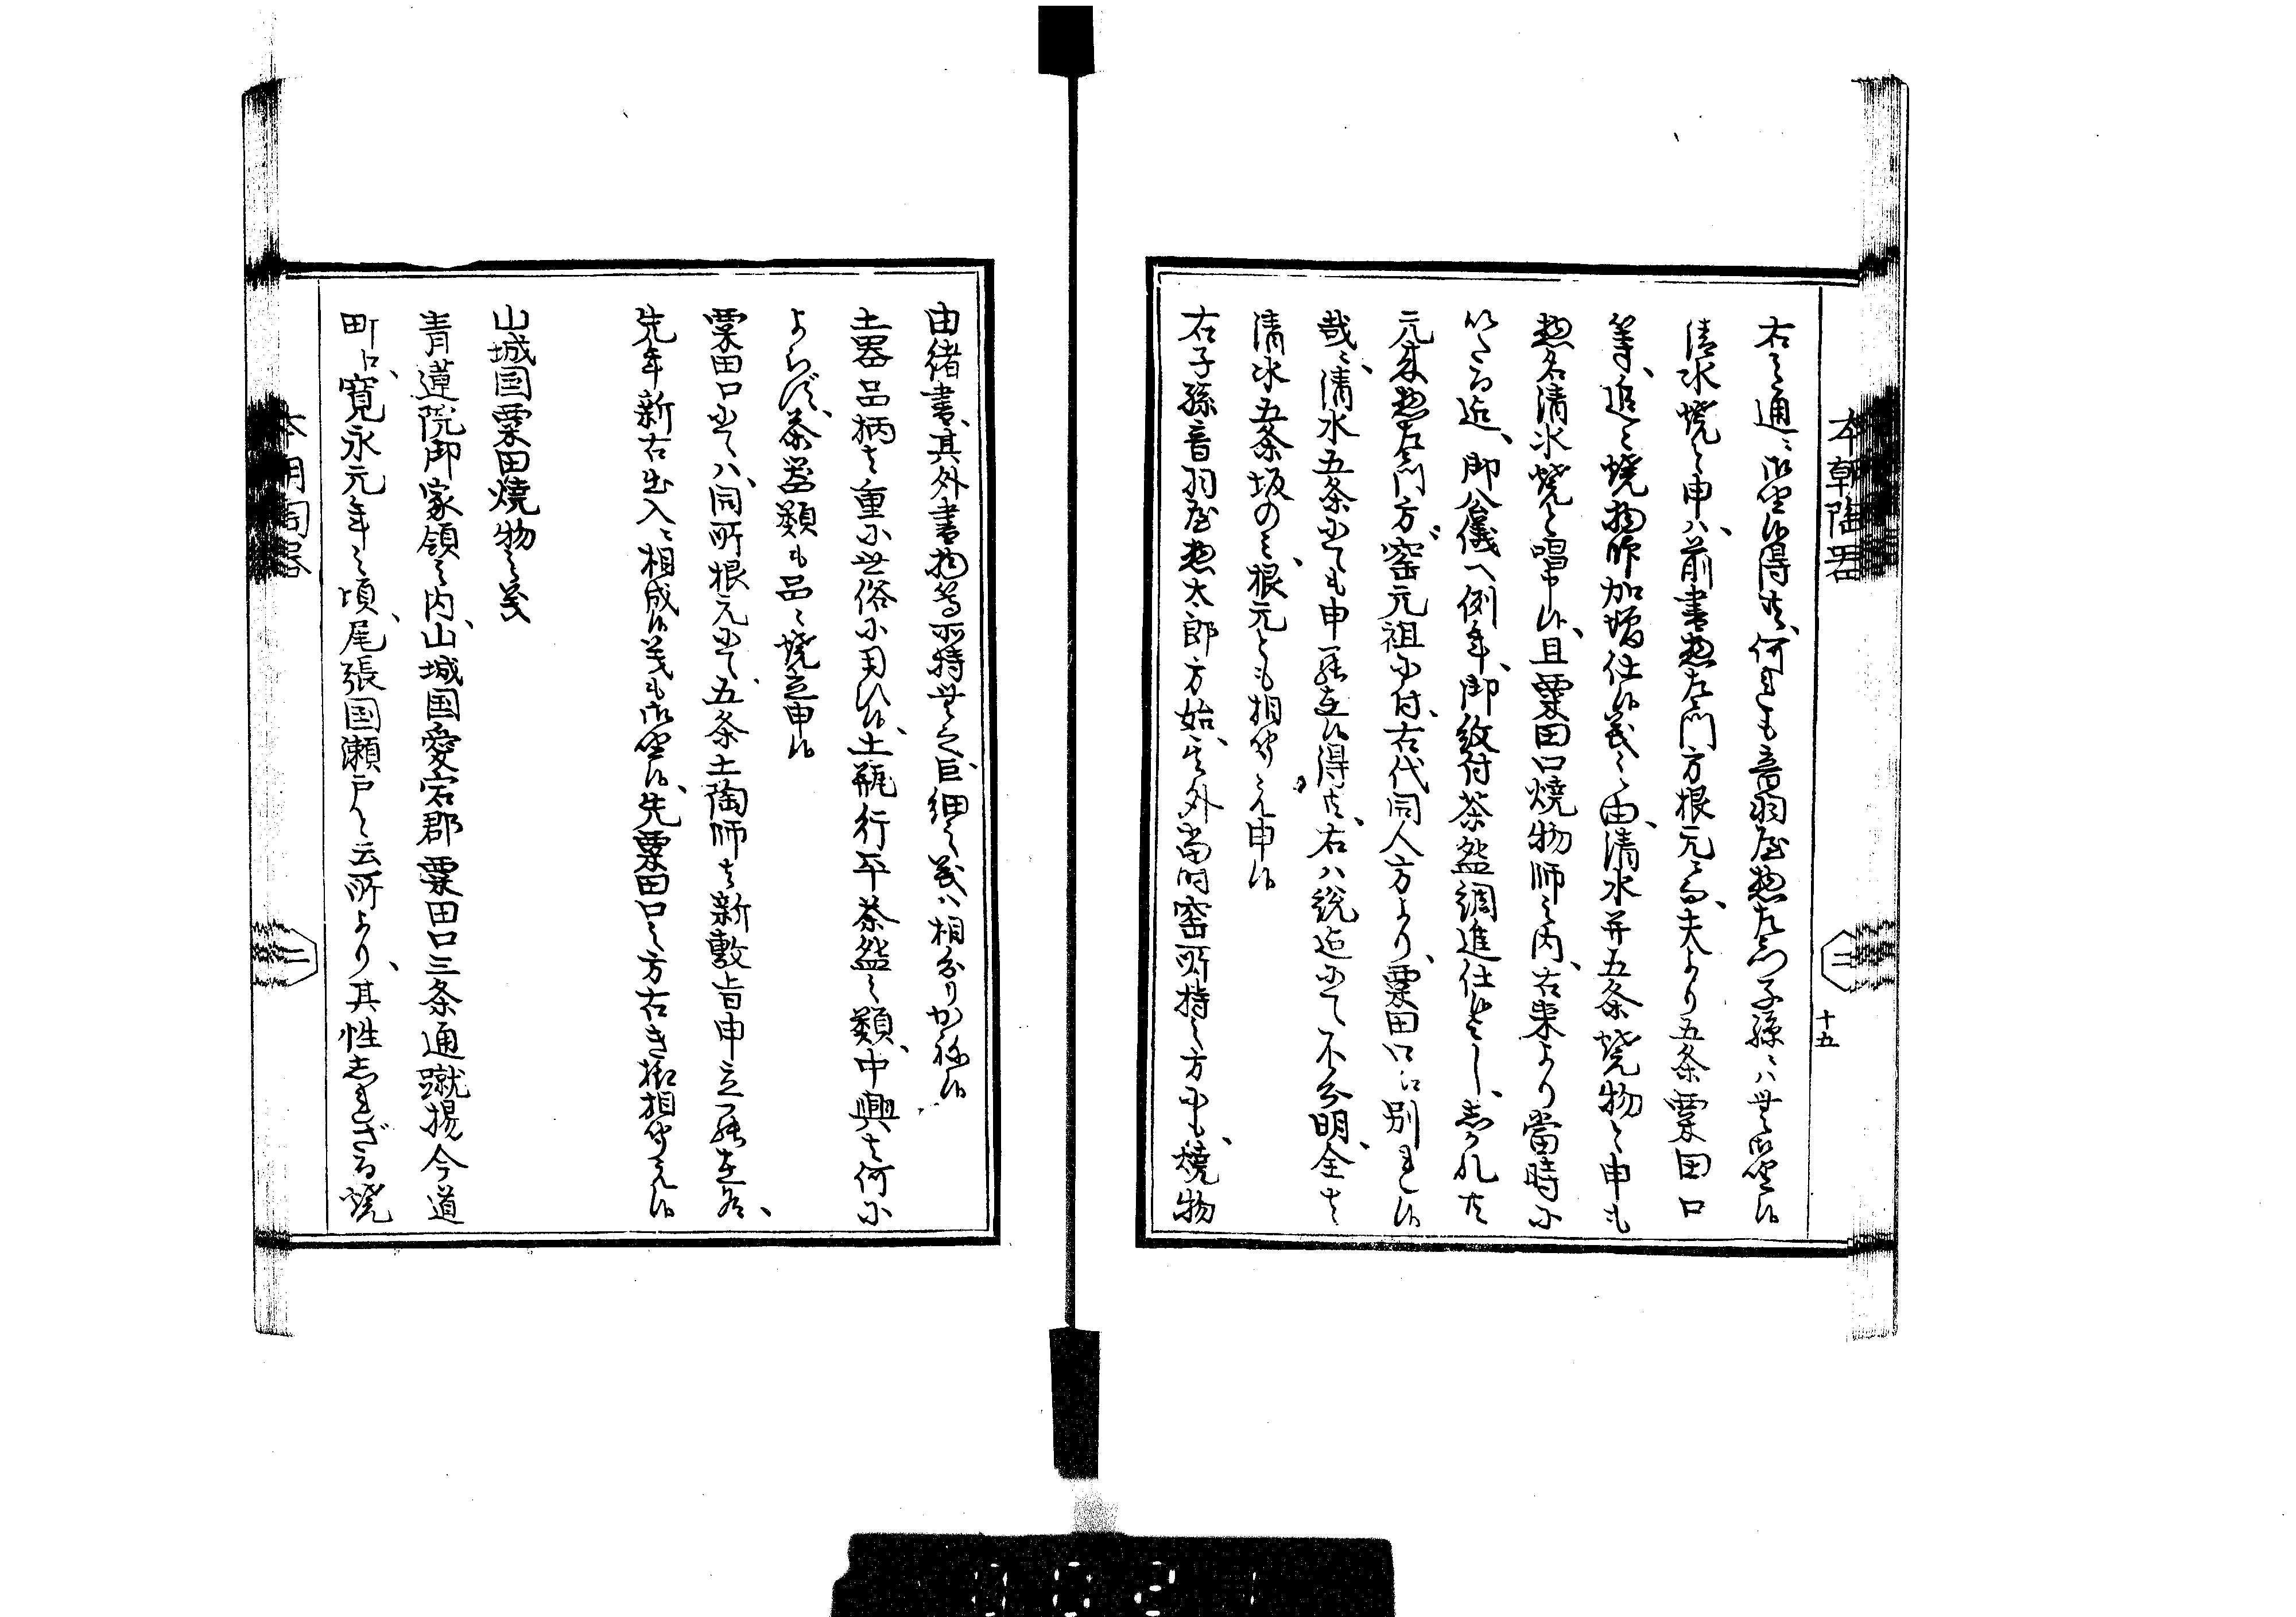 本朝陶器
二
十五
右之通ニ御坐候得共、何れも音羽屋惣左衛門子孫ニハ無御坐候
清水焼と申ハ、前書惣左衛門方根元ニ而、夫より五条粟田口
等、追々焼物師加増仕候義之由、清水并五条焼物と申も
惣名清水焼と唱申候、且粟田口焼物師之内、右東より當時ニ
いたる迄、御公儀へ例年、御紋付茶盌調進仕候よし、しかれ共
元来惣左衛門方、窯元祖ニ付、右代同人方より、粟田口江別れ候
哉ニ、清水五条ニても申罷在候得共、右ハ説迄ニて不分明、全く
清水五条坂のミ、根元とも相聞え申候
右子孫音羽屋惣太郎方始、其外当時窯所持之方ニも、焼物
由緒書、其外書物等所持無之、巨細之義ハ相分りかね候
土器品柄は重ニ世俗ニ用ひ候、土瓶行平茶盌之類、中興は何ニ
よらず、茶器類も品々焼立申候
粟田口ニてハ、同所根元ニて、五条土陶師は新敷旨申立罷在候、
先年新古出入ニ相成候義も御坐候、先粟田口之方古き様相聞え候
山城国粟田焼物之義
青蓮院御家領之内、山城国愛宕郡粟田口三条通蹴揚今道
町江、寛永元年之頃、尾張国瀬戸と云所より、其性しれざる焼
本朝陶器
二